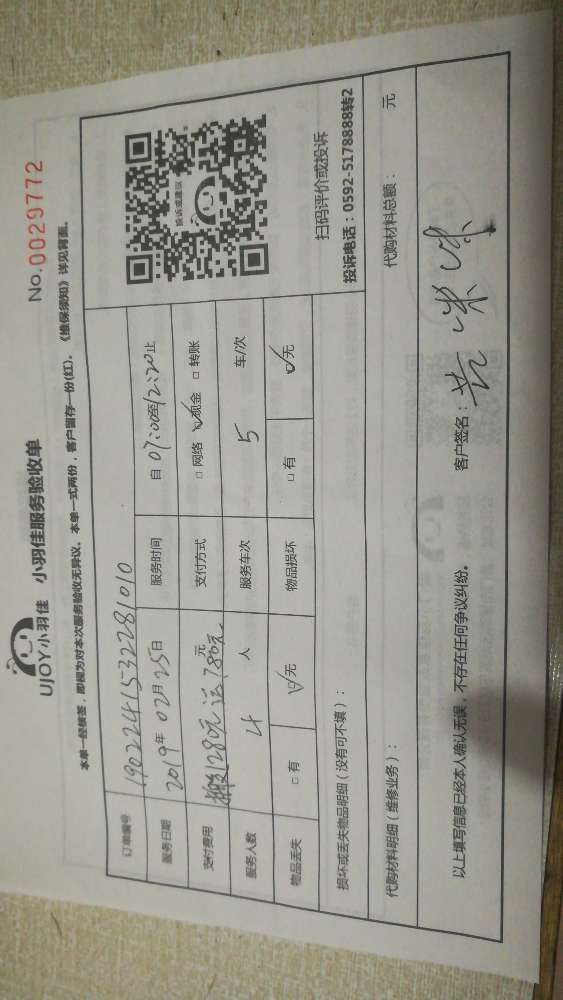 UJOY小羽佳 小羽佳服务验收单
No.0029772
本单一经核签，即视为对本次服务验收无异议。本单一式两份，客户留存一份(红)。《维保须知》详见背面。
订单编号 190224153228 1010
服务日期 2019年02月25日 服务时间 自07:00至12:20止
支付费用 搬128元 运780元 元 支付方式 □网络 ☑现金 □转账
服务人数 4 人 服务车次 5 车/次
物品丢失 □有 ☑无 物品损坏 □有 ☑无
投诉或建议
扫码评价或投诉
投诉电话：0592-5178888转2
损坏或丢失物品明细（没有可不填）：
代购材料明细（维修业务）： 代购材料总额： 元
以上填写信息已经本人确认无误，不存在任何争议纠纷。 客户签名：